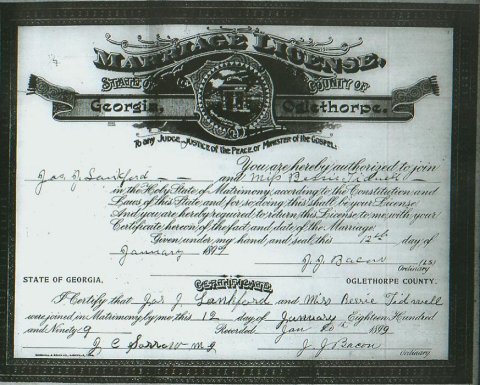 MARRIAGE LICENSE.
STATE OF COUNTY OF
Georgia, Oglethorpe.
To any Judge, Justice of the Peace, or Minister of the Gospel:
You are hereby authorized to join
Jas J Lankford and Miss Berrie Tidwell
in the Holy State of Matrimony, according to the Constitution and
Laws of this State and for so doing this shall be your License.
And you are hereby required to return this License to me with your
Certificate hereon of the fact and date of the Marriage.
Given under my hand and seal, this 12th day of
January 1899
J. J. Bacon (LS)
Ordinary
CERTIFICATE.
STATE OF GEORGIA, OGLETHORPE COUNTY.
I Certify that Jas J Lankford and Miss Berrie Tidwell
were joined in Matrimony by me, this 12 day of January Eighteen Hundred
and Ninety 9 Recorded, Jan 1899
J C Sorrow J. J Bacon
Ordinary